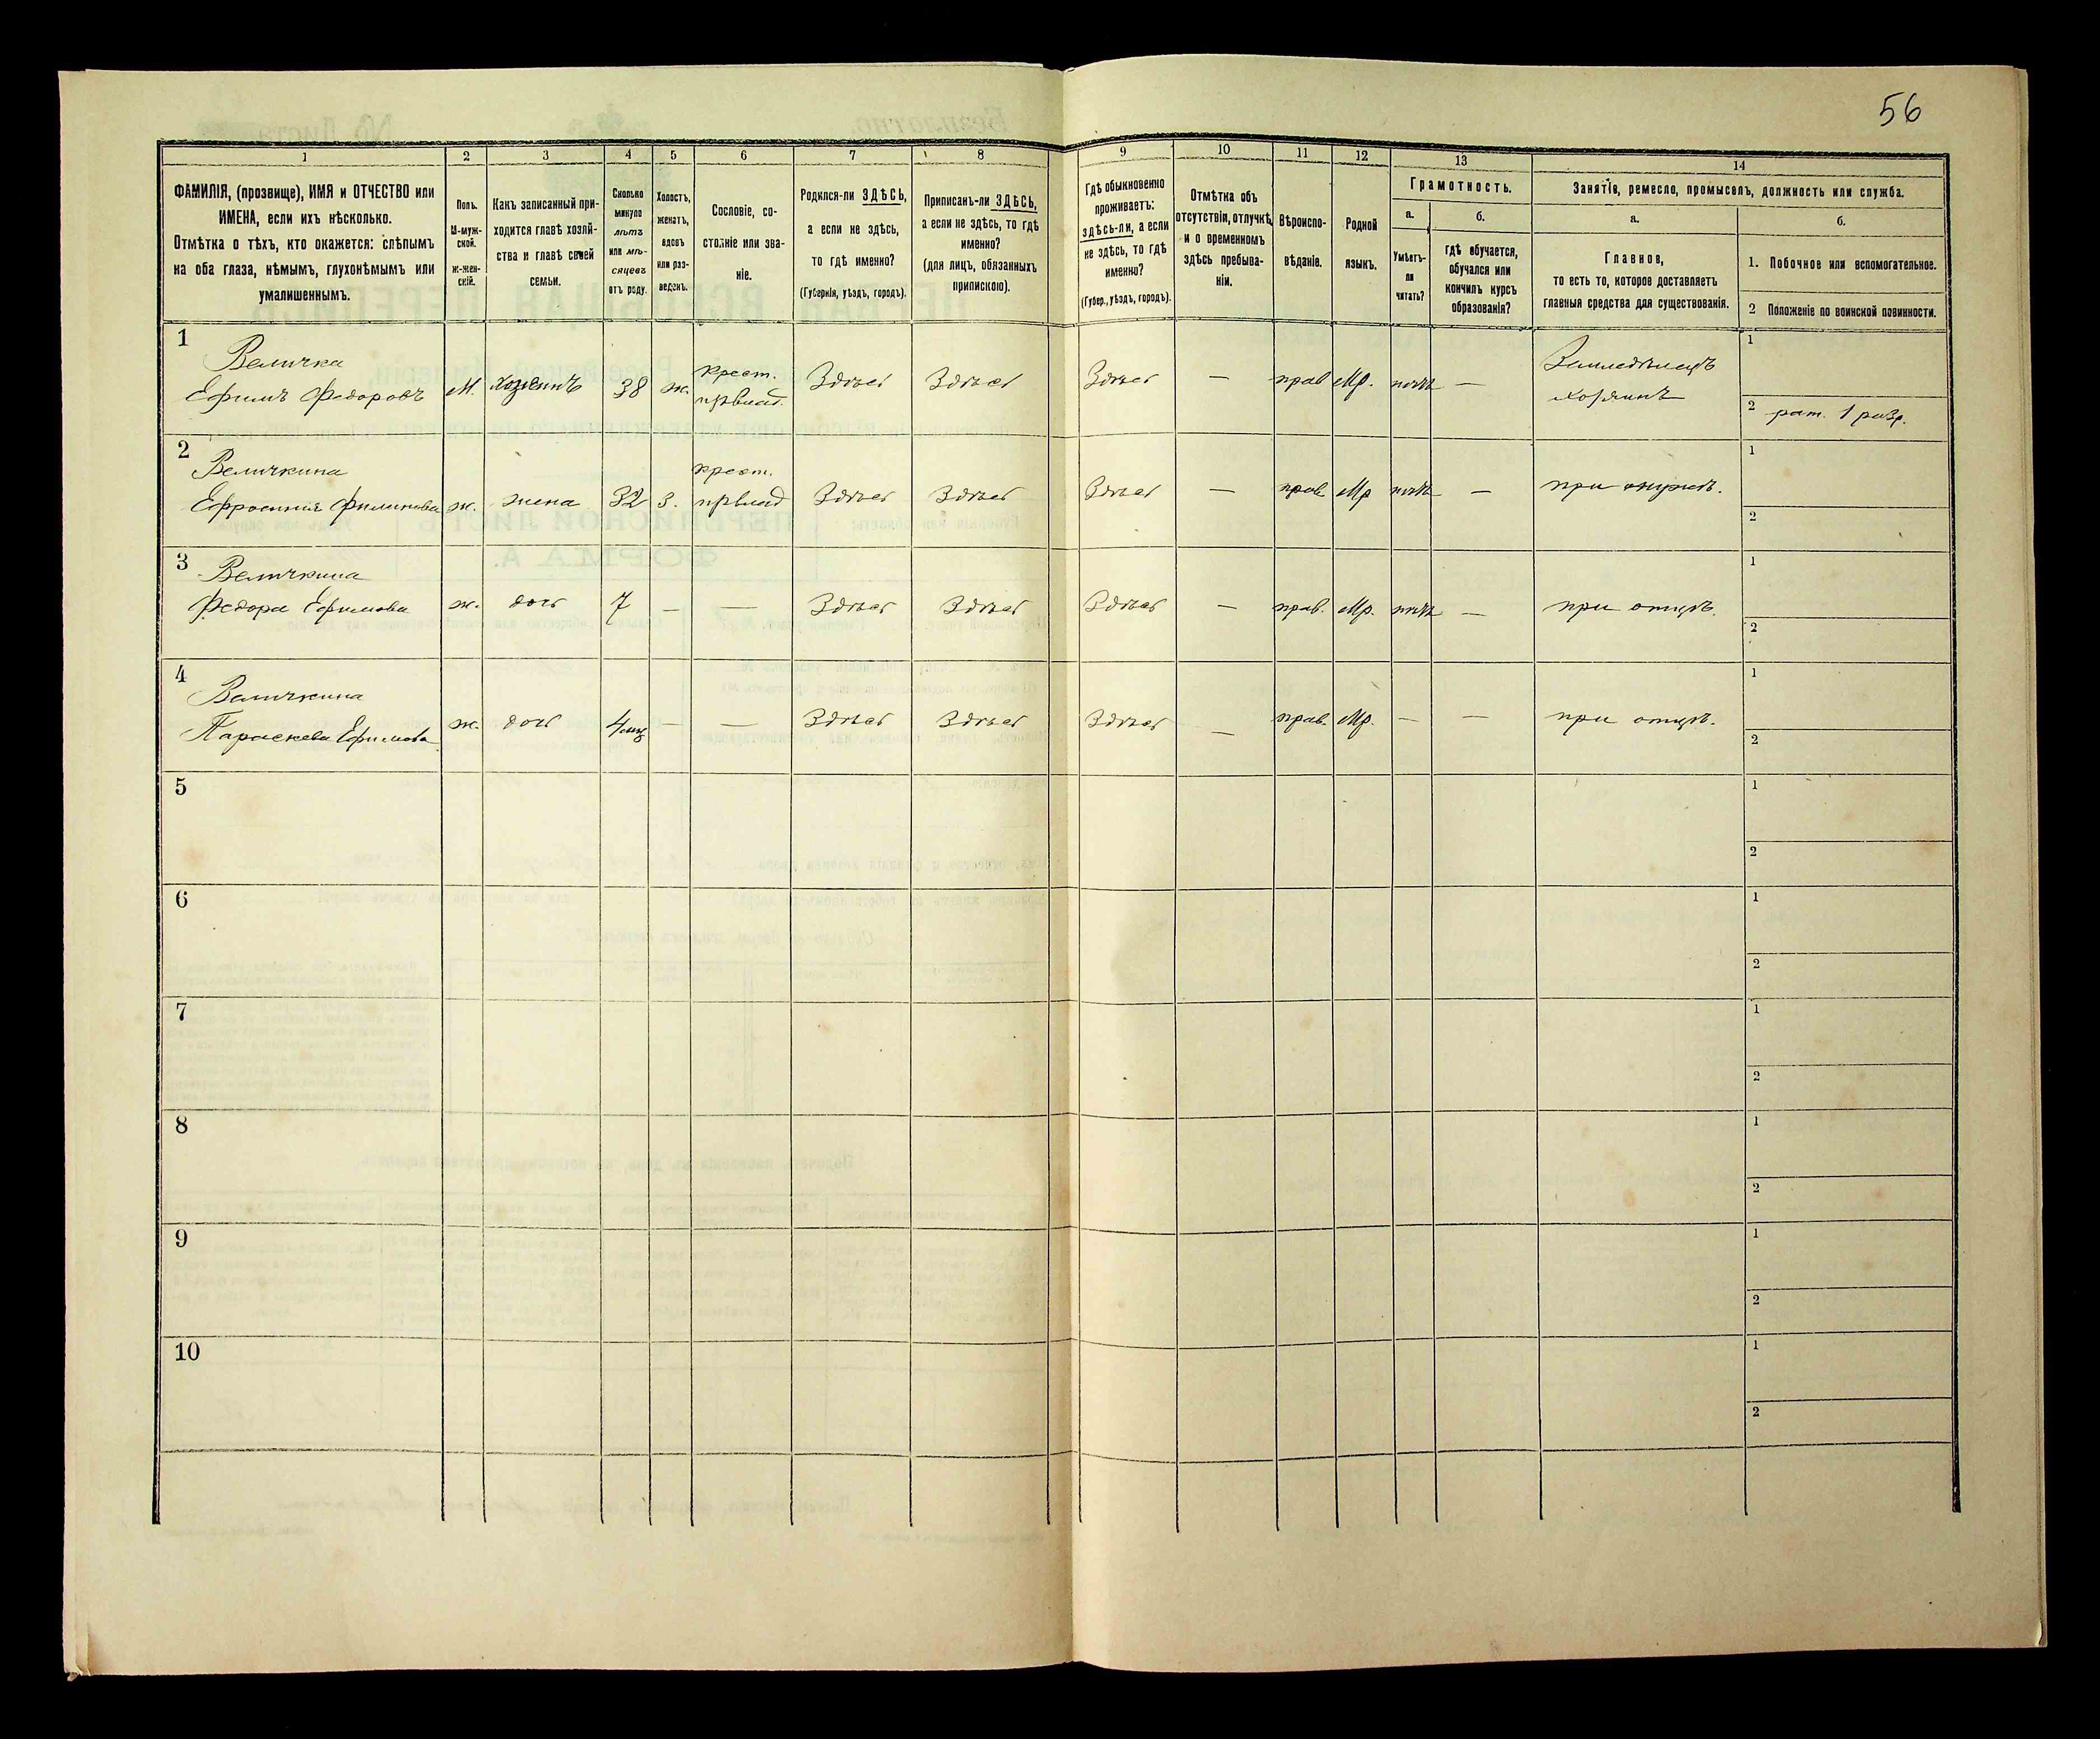 56
1 2 3 4 5 6 7 8 9 10 11 12 13 14
ФАМИЛІЯ, (прозвище), ИМЯ и ОТЧЕСТВО или
ИМЕНА, если ихъ нѣсколько.
Отмѣтка о тѣхъ, кто окажется: слѣпымъ
на оба глаза, нѣмымъ, глухонѣмымъ или
умалишеннымъ.
Полъ.
М-муж-
ской.
Ж-жен-
скій.
Какъ записанный при-
ходится главѣ хозяй-
ства и главѣ своей
семьи.
Сколько
минуло
лѣтъ
или мѣ-
сяцевъ
отъ роду.
Холостъ,
женатъ,
вдовъ
или раз-
веденъ.
Сословіе, со-
стояніе или зва-
ніе.
Родился-ли ЗДѢСЬ,
а если не здѣсь,
то гдѣ именно?
(Губернія, уѣздъ, городъ).
Приписанъ-ли ЗДѢСЬ,
а если не здѣсь, то гдѣ
именно?
(для лицъ, обязанныхъ
припискою).
Гдѣ обыкновенно
проживаетъ:
здѣсь-ли, а если
не здѣсь, то гдѣ
именно?
(Губер., уѣздъ, городъ).
Отмѣтка объ
отсутствіи, отлучкѣ,
и о временномъ
здѣсь пребыва-
ніи.
Вѣроиспо-
вѣданіе.
Родной
языкъ.
Грамотность.
а.
Умѣетъ-
ли
читать?
б.
гдѣ обучается,
обучался или
кончилъ курсъ
образованія?
Занятіе, ремесло, промыселъ, должность или служба.
а.
Главное,
то есть то, которое доставляетъ
главныя средства для существованія.
б.
1. Побочное или вспомогательное.
2 Положеніе по воинской повинности.
1
Величка
Ефимъ Федоровъ М. хозяинъ 38 ж. крест.
Здѣсь Здѣсь Здѣсь — прав Мр. нѣтъ —
Земледѣлецъ
хозяинъ
1
2 рат. 1 разр.
2
Величкина
Ефросинія Филипова ж. жена 32 з. крест.
Здѣсь Здѣсь Здѣсь — прав Мр нѣтъ — при мужѣ.
1
2
3
Величкина
Федора Ефимова ж. дочь 7 — — Здѣсь Здѣсь Здѣсь — прав. Мр. нѣтъ — при отцѣ.
1
2
4
Величкина
Параскева Ефимова ж. дочь 4 мѣс — — Здѣсь Здѣсь Здѣсь — прав. Мр. — — при отцѣ.
1
2
5
1
2
6
1
2
7
1
2
8
1
2
9
1
2
10
1
2